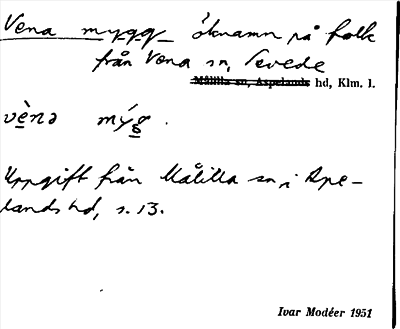 Vena mygg öknamn på folk
från Vena sn, Sevede
Målilla sn, Aspelands hd, Klm. l.
vènə mýg .
Uppgift från Målilla sn, i Aspe-
lands hd, s. 13.
Ivar Modéer 1951